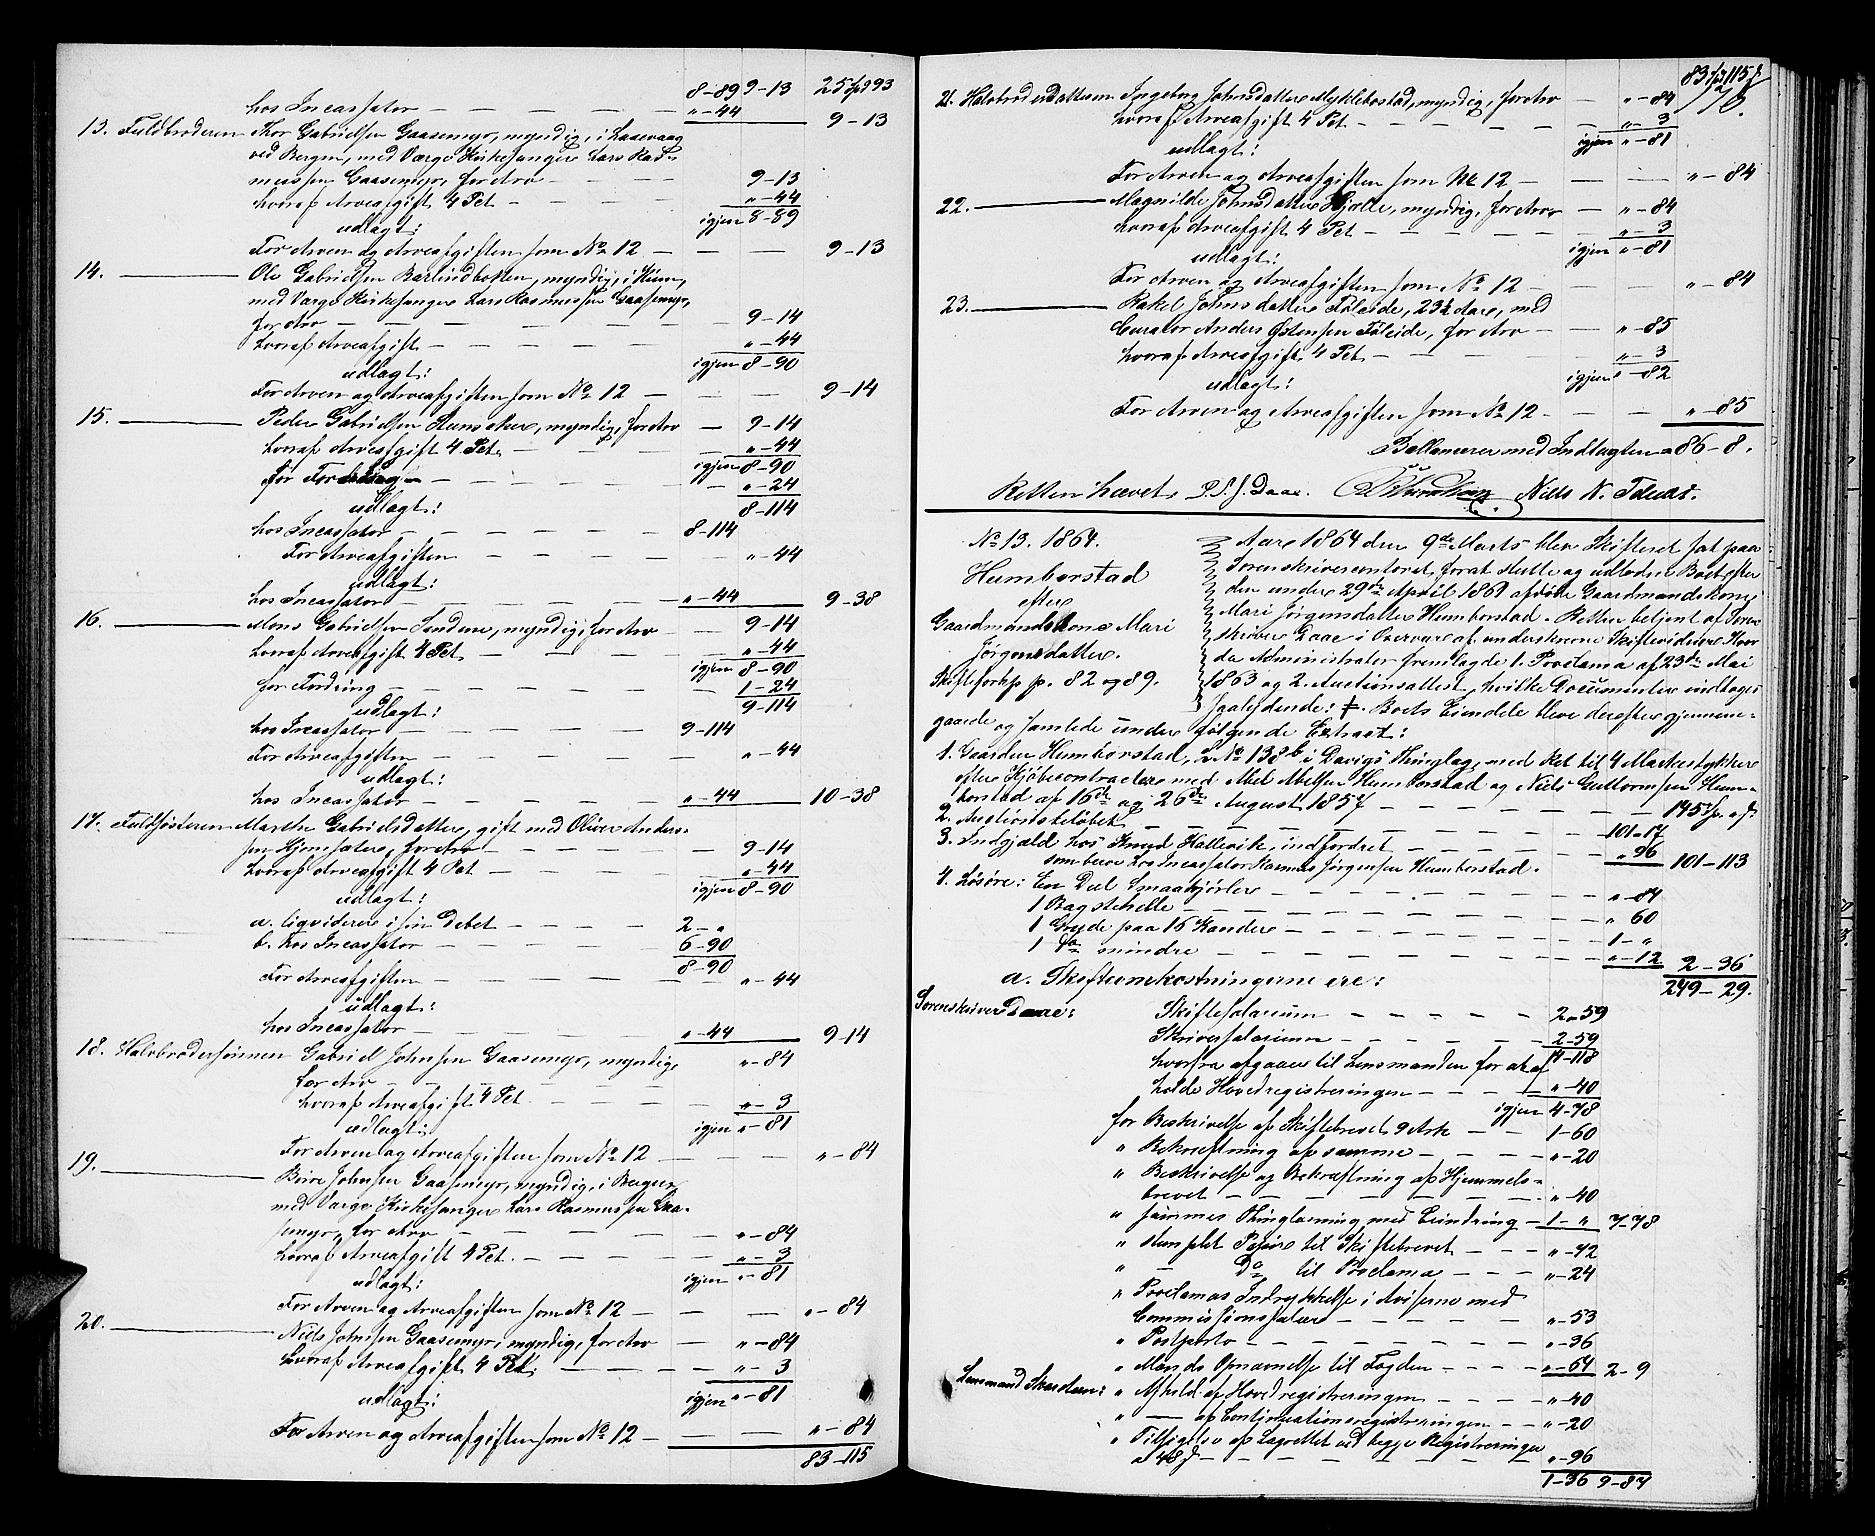 8-89 9-13 25 sp 93
hos Incassator — — — — — "-44
9-13
13. Fuldbroderen Thor Gabrielsen Gaasemyr, myndig, i Laxevaag
ved Bergen, med Værge Kirkesanger Lars Ras-
mussen Gaasemyr, for Arv — — — 9-13
hvoraf Arveafgift 4 Pct — — — "-44
igjen 8-89
udlagt:
For Arven og Arveafgiften som No 12 — — — 9-13
14. ——— Ole Gabrielsen Barlindbotten, myndig, i Kinn,
med Værge Kirkesanger Lars Rasmussen Gaasemyr,
for Arv — — — — — — 9-14
hvoraf Arveafgift — — — — — "-44
igjen 8-90
udlagt:
For Arven og Arveafgiften som No 12 — — — 9-14
15. ——— Peder Gabrielsen Hunskar, myndig, for Arv — 9-14
hvoraf Arveafgift 4 Pct. — — — — "-44
igjen 8-90
for Fordring — — — — — "-24
8-114
udlagt:
hos Incassator — — — — — 8-114
For Arveafgiften — — — — "-44
udlagt:
hos Incassator — — — — — "-44
9-38
16. ——— Mons Gabrielsen Indene, myndig, for Arv — 9-14
hvoraf Arveafgift 4 Pct — — — — "-44
igjen 8-90
for Fordring — — — — — 1-24
9-114
udlagt:
hos Incassator — — — — — 9-114
For Arveafgiften — — — — "-44
udlagt:
hos Incassator — — — — — "-44
10-38
17. Fuldsøsteren Marthe Gabrielsdatter, gift med Oliver Anders-
sen Hjemsæter, for Arv — — — — 9-14
hvoraf Arveafgift 4 Pct — — — "-44
igjen 8-90
udlagt:
a. liqviderer i sin Debet — — — 2-"
b. hos Incassator — — — — 6-90
8-90
For Arveafgiften — — — — "-44
udlagt:
hos Incassator — — — — — "-44
9-14
18. Halvbrodersønnen Gabriel Johnsen Gaasemyr, myndig,
for Arv — — — — "-84
hvoraf Arveafgift 4 Pct — — — "-3
igjen "-81
udlagt:
For Arven og Arveafgiften som No 12 — — — "-84
19. ——— Birre Johnsen Gaasemyr, myndig, i Bergen,
med Værge Kirkesanger Lars Rasmussen Gaa-
semyr, for Arv — — — — "-84
hvoraf Arveafgift 4 Pct. — — — "-3
igjen "-81
udlagt:
For Arven og Arveafgiften som No 12 — — — "-84
20. ——— Niels Johnsen Gaasemyr, myndig, for Arv — "-84
hvoraf Arveafgift 4 Pct. — — — "-3
igjen "-81
udlagt:
For Arven og Arveafgiften som No 12 — — — "-84
83-115
83 sp 115 s
21. Halvbroderdatteren Ingeborg Johnsdatter Myklebostad, myndig, for Arv — "-84
hvoraf Arveafgift 4 Pct — — — — "-3
igjen "-81
udlagt:
For Arven og Arveafgiften som No 12 — — — "-84
22. ——— Magnilde Johnsdatter Hjelle, myndig, for Arv — "-84
hvoraf Arveafgift 4 Pct — — — — "-3
igjen "-81
udlagt:
For Arven og Arveafgiften som No 12 — — — "-84
23. ——— Rakel Johnsdatter Føleide, 23½ Aar, med
Curator Anders Østensen Føleide, for Arv — "-85
hvoraf Arveafgift 4 Pct. — — — "-3
igjen "-82
udlagt:
For Arven og Arveafgiften som No 12 — — — "-85
Ballancerer med Indtægten 86-8.
Retten hævet. P. S. J. Daae. Niels N.
No 13. 1864.
Humborstad
efter
Gaardmandskone Mari
Jørgensdatter.
Skiftforhp p. 82 og 89.
Aar 1864 den 9de Marts blev Skifteret sat paa
Sorenskrivercontoret for at slutte og udlodne Boet efter
den under 29de April 1861 afdøde Gaardmandskone
Mari Jørgensdatter Humborstad. Retten betjent af Soren-
skriver Daae i Overvær af underskrevne Skiftevidner. Hvor-
da Administrator fremlagde 1. Proclama af 23de Mai
1863 og 2. Auctionsattest, hvilke Documenter indtages
saalydende: #. Boets Eiendele bleve derefter gjennem-
gaaede og samlede under følgende Extract:
1. Gaarden Humborstad, L No 138 b i Davigs Thinglag, med Ret til 4 Markestykker
efter Kjøbecontracter med Abel Abelsen Humborstad og Niels Guttormsen Hum-
borstad af 16de og 26de August 1857 — — — — 145 sp " s
2. Auctionsbeløbet — — — — — 101-17
3. Indgjæld hos Knud Hallevik, indfordret — — — "-96
som beror hos Incassator Rasmus Jørgensen Humborstad. 101-113
4. Løsøre: En Deel Smaakjørler — — — — "-84
1 Bagstehelle — — — — — "-60
1 Gryde paa 16 Kander — — — — 1-"
1 do mindre — — — — — "-12
2-36
249-29.
a. Skifteomkostningerne ere:
Sorenskriver Daae: Skiftesalarium — — — — 2-59
Skriversalarium — — — — 2-59
4-118
hvorfra afgaaer til Lensmanden for at af-
holde Hovedregistreringen — — — "-40
igjen 4-78
for Beskrivelse af Skiftebrevet 9 Ark — — 1-60
" Bekræftning af samme — — — "-20
" Beskrivelse og Bekræftning af Hjemmels-
brevet — — — — — "-40
" sammes Thinglæsning med Erindring — 1-" 7-78
" stemplet Papir til Skiftebrevet — — "-72
" — Do til Proclama — — — "-24
" Proclamas Indrykkelse i Aviserne med
Commissionsalær — — — — "-53
" Postporto — — — — — "-36
" Mænds Opnævnelse til Fogden — — — "-64 2-9
Lensmand Skarsteen: " Afhold. af Hovedregistreringen — — — "-40
" — af Continuationsregistreringen — — "-20
" Tilsigelse af Lagrettet ved begge Registreringer
a 48 s — — — — — — "-96
1-36 9-87